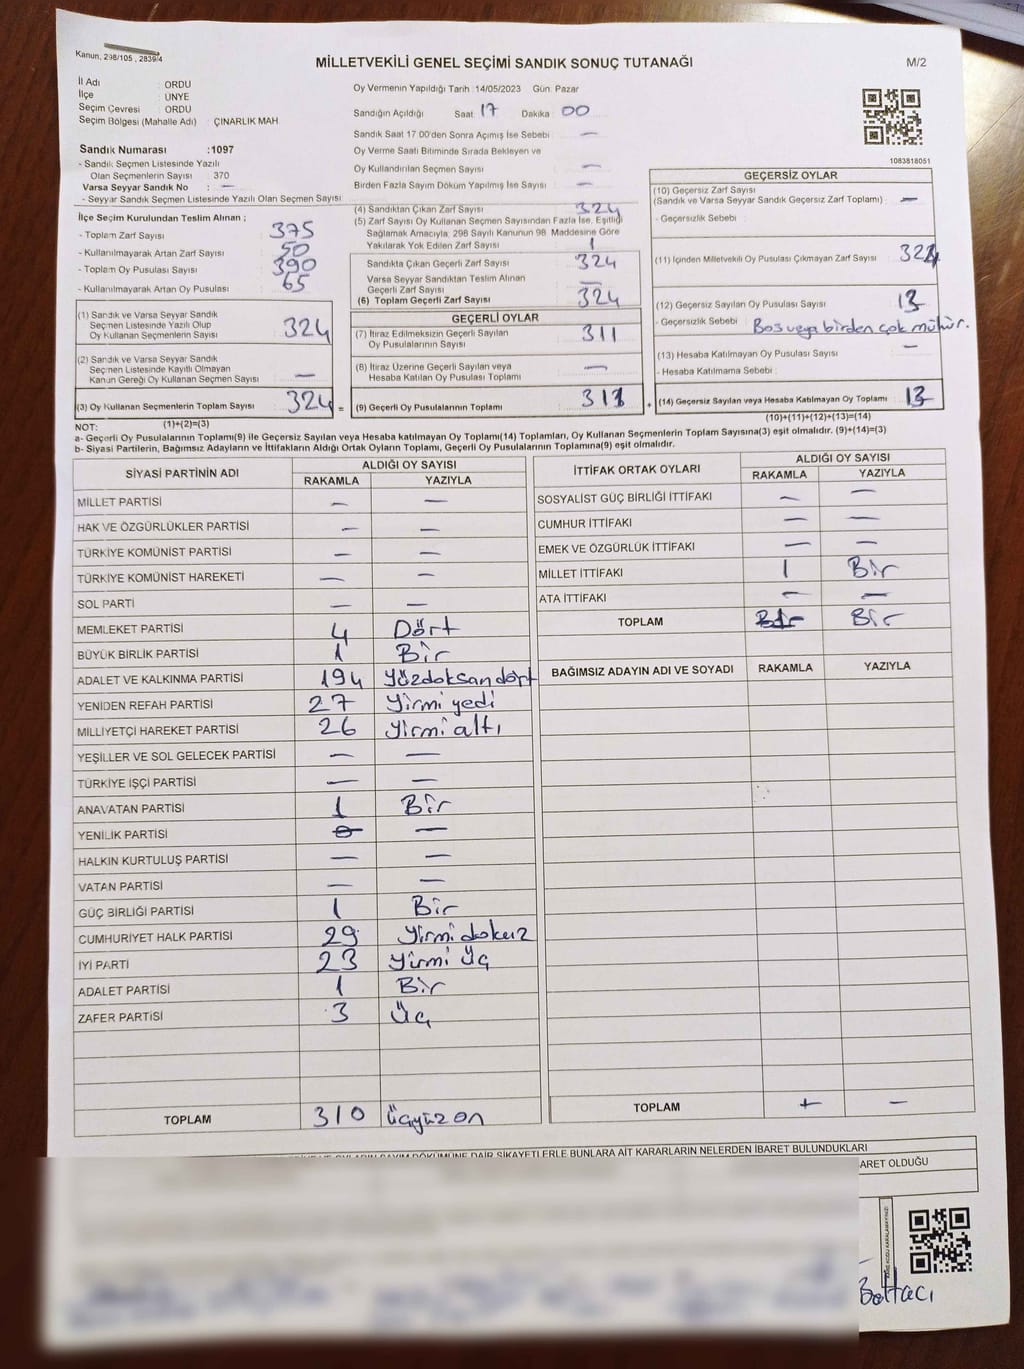 Kanun, 298/105 , 2839/4
MİLLETVEKİLİ GENEL SEÇİMİ SANDIK SONUÇ TUTANAĞI
M/2
İl Adı : ORDU
İlçe : ÜNYE
Seçim Çevresi : ORDU
Seçim Bölgesi (Mahalle Adı) : ÇINARLIK MAH
Sandık Numarası :1097
- Sandık Seçmen Listesinde Yazılı
Olan Seçmenlerin Sayısı : 370
Varsa Seyyar Sandık No : —
- Seyyar Sandık Seçmen Listesinde Yazılı Olan Seçmen Sayısı
Oy Vermenin Yapıldığı Tarih : 14/05/2023 Gün Pazar
Sandığın Açıldığı Saat 17 Dakika 00
Sandık Saat 17:00'den Sonra Açımış İse Sebebi : —
Oy Verme Saati Bitiminde Sırada Bekleyen ve
Oy Kullandırılan Seçmen Sayısı : —
Birden Fazla Sayım Döküm Yapılmış İse Sayısı : —
1083818051
İlçe Seçim Kurulundan Teslim Alınan ;
- Toplam Zarf Sayısı : 375
- Kullanılmayarak Artan Zarf Sayısı : 50
- Toplam Oy Pusulası Sayısı : 390
- Kullanılmayarak Artan Oy Pusulası : 65
(1) Sandık ve Varsa Seyyar Sandık
Seçmen Listesinde Yazılı Olup
Oy Kullanan Seçmen Sayısı : 324
(2) Sandık ve Varsa Seyyar Sandık
Seçmen Listesinde Kayıtlı Olmayan
Kanun Gereği Oy Kullanan Seçmen Sayısı : —
(3) Oy Kullanan Seçmenlerin Toplam Sayısı : 324 =
(1)+(2)=(3)
(4) Sandıktan Çıkan Zarf Sayısı : 324
(5) Zarf Sayısı Oy Kullanan Seçmen Sayısından Fazla İse, Eşitliği
Sağlamak Amacıyla, 298 Sayılı Kanunun 98. Maddesine Göre
Yakılarak Yok Edilen Zarf Sayısı : 1
Sandıkta Çıkan Geçerli Zarf Sayısı : 324
Varsa Seyyar Sandıktan Teslim Alınan
Geçerli Zarf Sayısı : —
(6) Toplam Geçerli Zarf Sayısı : 324
GEÇERLİ OYLAR
(7) İtiraz Edilmeksizin Geçerli Sayılan
Oy Pusulalarının Sayısı : 311
(8) İtiraz Üzerine Geçerli Sayılan veya
Hesaba Katılan Oy Pusulası Toplamı : —
(9) Geçerli Oy Pusulalarının Toplamı : 311 +
GEÇERSİZ OYLAR
(10) Geçersiz Zarf Sayısı
(Sandık ve Varsa Seyyar Sandık Geçersiz Zarf Toplamı) : —
- Geçersizlik Sebebi :
(11) İçinden Milletvekili Oy Pusulası Çıkmayan Zarf Sayısı : 324
(12) Geçersiz Sayılan Oy Pusulası Sayısı : 13
- Geçersizlik Sebebi : Boş veya birden çok mühür.
(13) Hesaba Katılmayan Oy Pusulası Sayısı : —
- Hesaba Katılmama Sebebi :
(14) Geçersiz Sayılan veya Hesaba Katılmayan Oy Toplamı : 13
(10)+(11)+(12)+(13)=(14)
NOT:
a- Geçerli Oy Pusulalarının Toplamı(9) ile Geçersiz Sayılan veya Hesaba katılmayan Oy Toplamı(14) Toplamları, Oy Kullanan Seçmenlerin Toplam Sayısına(3) eşit olmalıdır. (9)+(14)=(3)
b- Siyasi Partilerin, Bağımsız Adayların ve İttifakların Aldığı Ortak Oyların Toplamı, Geçerli Oy Pusulalarının Toplamına(9) eşit olmalıdır.
SİYASİ PARTİNİN ADI ALDIĞI OY SAYISI
RAKAMLA YAZIYLA
MİLLET PARTİSİ — —
HAK VE ÖZGÜRLÜKLER PARTİSİ — —
TÜRKİYE KOMÜNİST PARTİSİ — —
TÜRKİYE KOMÜNİST HAREKETİ — —
SOL PARTİ — —
MEMLEKET PARTİSİ 4 Dört
BÜYÜK BİRLİK PARTİSİ 1 Bir
ADALET VE KALKINMA PARTİSİ 194 Yüzdoksandört
YENİDEN REFAH PARTİSİ 27 Yirmi yedi
MİLLİYETÇİ HAREKET PARTİSİ 26 Yirmi altı
YEŞİLLER VE SOL GELECEK PARTİSİ — —
TÜRKİYE İŞÇİ PARTİSİ — —
ANAVATAN PARTİSİ 1 Bir
YENİLİK PARTİSİ — —
HALKIN KURTULUŞ PARTİSİ — —
VATAN PARTİSİ — —
GÜÇ BİRLİĞİ PARTİSİ 1 Bir
CUMHURİYET HALK PARTİSİ 29 Yirmi dokuz
İYİ PARTİ 23 Yirmi Üç
ADALET PARTİSİ 1 Bir
ZAFER PARTİSİ 3 Üç
TOPLAM 310 Üçyüz on
İTTİFAK ORTAK OYLARI ALDIĞI OY SAYISI
RAKAMLA YAZIYLA
SOSYALİST GÜÇ BİRLİĞİ İTTİFAKI — —
CUMHUR İTTİFAKI — —
EMEK VE ÖZGÜRLÜK İTTİFAKI — —
MİLLET İTTİFAKI 1 Bir
ATA İTTİFAKI — —
TOPLAM Bir Bir
BAĞIMSIZ ADAYIN ADI VE SOYADI RAKAMLA YAZIYLA
TOPLAM + —
SAYIM DÖKÜMÜNE DAİR ŞİKAYETLERLE BUNLARA AİT KARARLARIN NELERDEN İBARET BULUNDUKLARI
ARET OLDUĞU